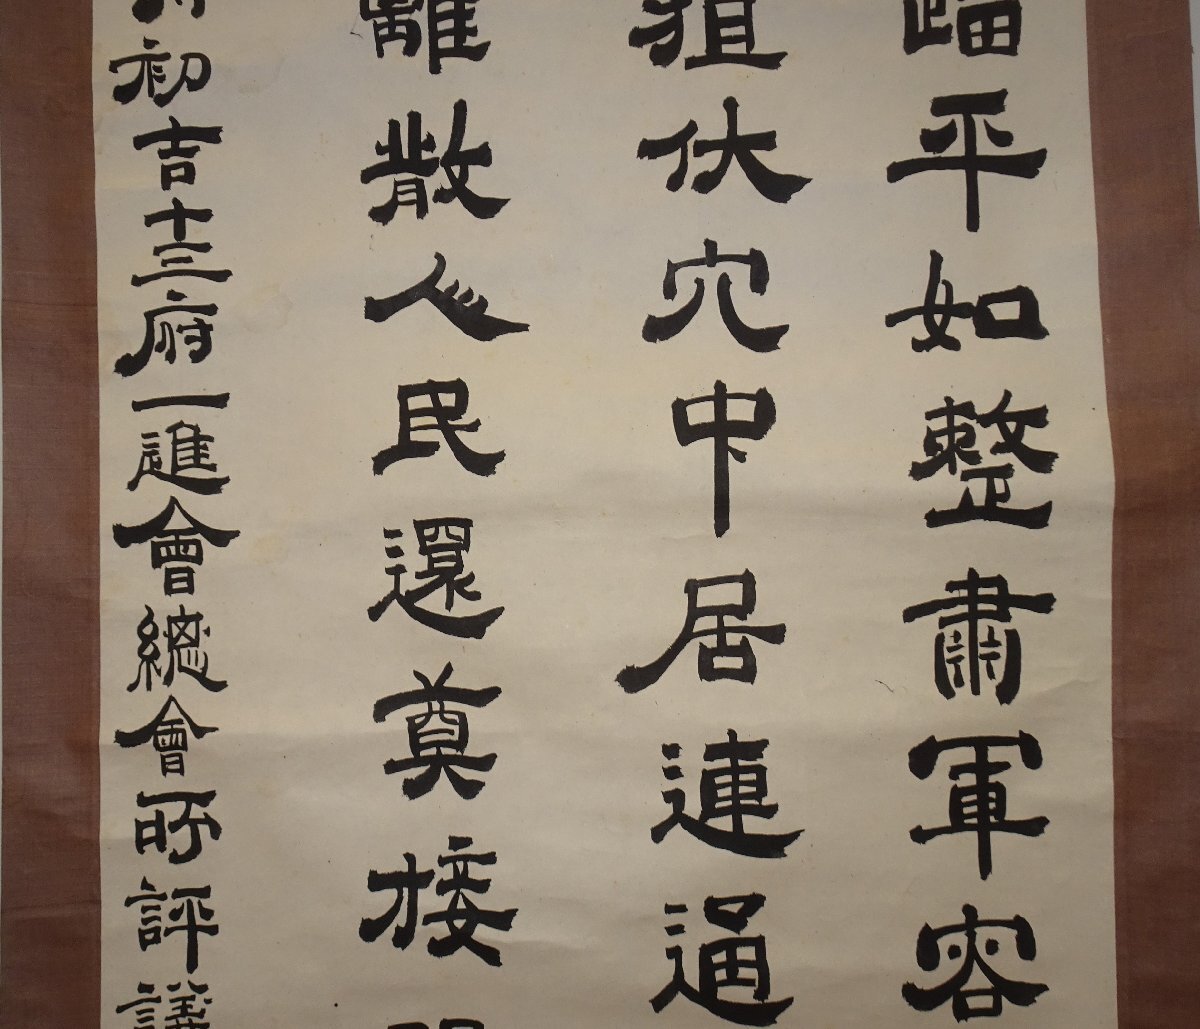 踏平如整肅軍容
狙伏穴中居連逼
離散人民還奠接
初吉十三府一進會總會所評議